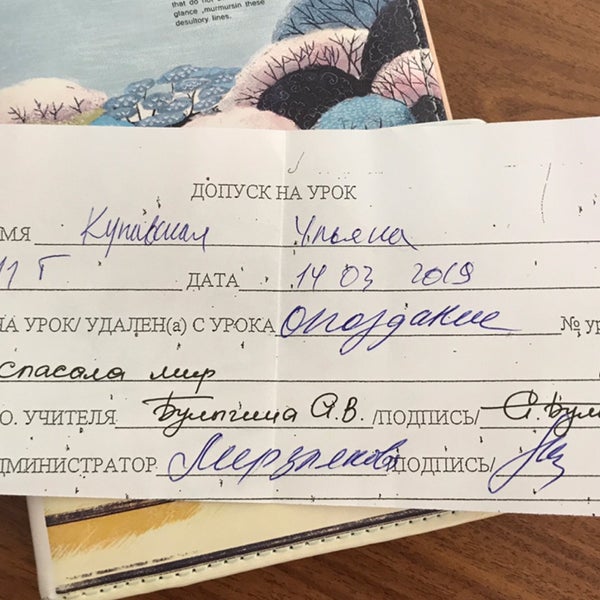 that do not
glance ,murmursin these
desultory lines.
ДОПУСК НА УРОК
МЯ Купавская Ульяна
11 Г ДАТА 14 03 2019
НА УРОК/ УДАЛЕН(а) С УРОКА опоздание № ур
спасала мир
О. УЧИТЕЛЯ Булыгина А.В. /ПОДПИСЬ/ А.Бул
ДМИНИСТРАТОР /ПОДПИСЬ/